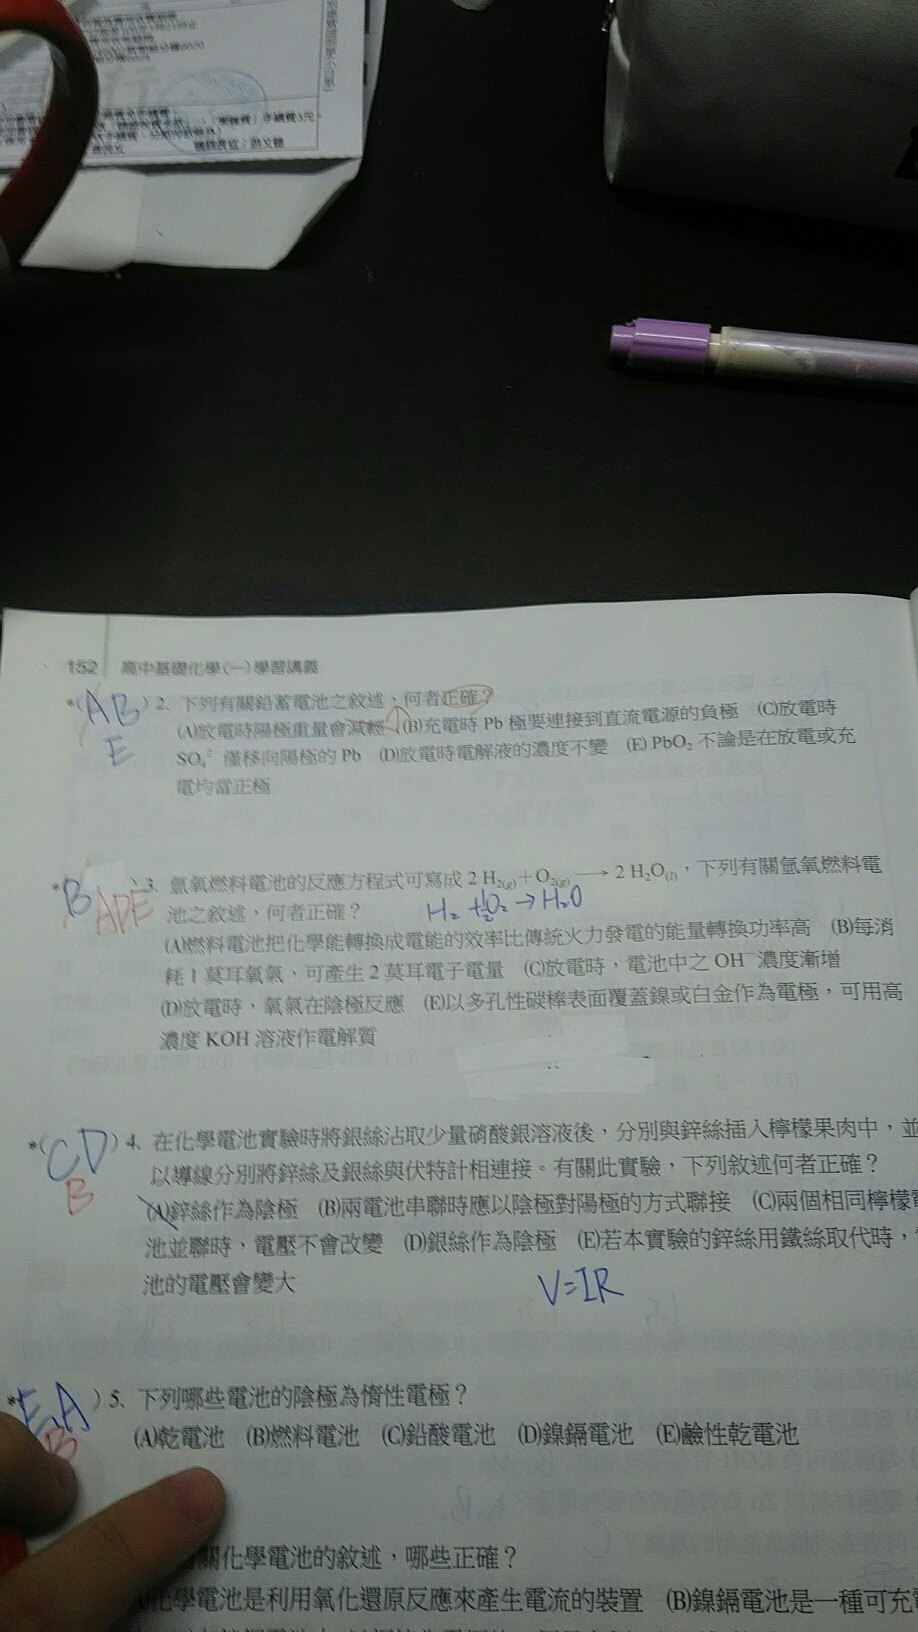 152 高中基礎化學(一)學習講義
*(AB
E
) 2. 下列有關鉛蓄電池之敘述，何者正確？
(A)放電時陽極重量會減輕 (B)充電時 Pb 極要連接到直流電源的負極 (C)放電時
SO₄²⁻ 僅移向陽極的 Pb (D)放電時電解液的濃度不變 (E) PbO₂ 不論是在放電或充
電均當正極
*B
ADE
3. 氫氧燃料電池的反應方程式可寫成 2 H₂(g)+O₂(g) → 2 H₂O(l)，下列有關氫氧燃料電
池之敘述，何者正確？
H₂ + ½O₂ → H₂O
(A)燃料電池把化學能轉換成電能的效率比傳統火力發電的能量轉換功率高 (B)每消
耗 1 莫耳氧氣、可產生 2 莫耳電子電量 (C)放電時，電池中之 OH⁻ 濃度漸增
(D)放電時，氧氣在陰極反應 (E)以多孔性碳棒表面覆蓋鎳或白金作為電極，可用高
濃度 KOH 溶液作電解質
*(CD
B
) 4. 在化學電池實驗時將銀絲沾取少量硝酸銀溶液後，分別與鋅絲插入檸檬果肉中，並
以導線分別將鋅絲及銀絲與伏特計相連接。有關此實驗，下列敘述何者正確？
(A)鋅絲作為陰極 (B)兩電池串聯時應以陰極對陽極的方式聯接 (C)兩個相同檸檬電
池並聯時，電壓不會改變 (D)銀絲作為陰極 (E)若本實驗的鋅絲用鐵絲取代時，
池的電壓會變大
V=IR
*EA
B
) 5. 下列哪些電池的陰極為惰性電極？
(A)乾電池 (B)燃料電池 (C)鉛酸電池 (D)鎳鎘電池 (E)鹼性乾電池
關化學電池的敘述，哪些正確？
化學電池是利用氧化還原反應來產生電流的裝置 (B)鎳鎘電池是一種可充電